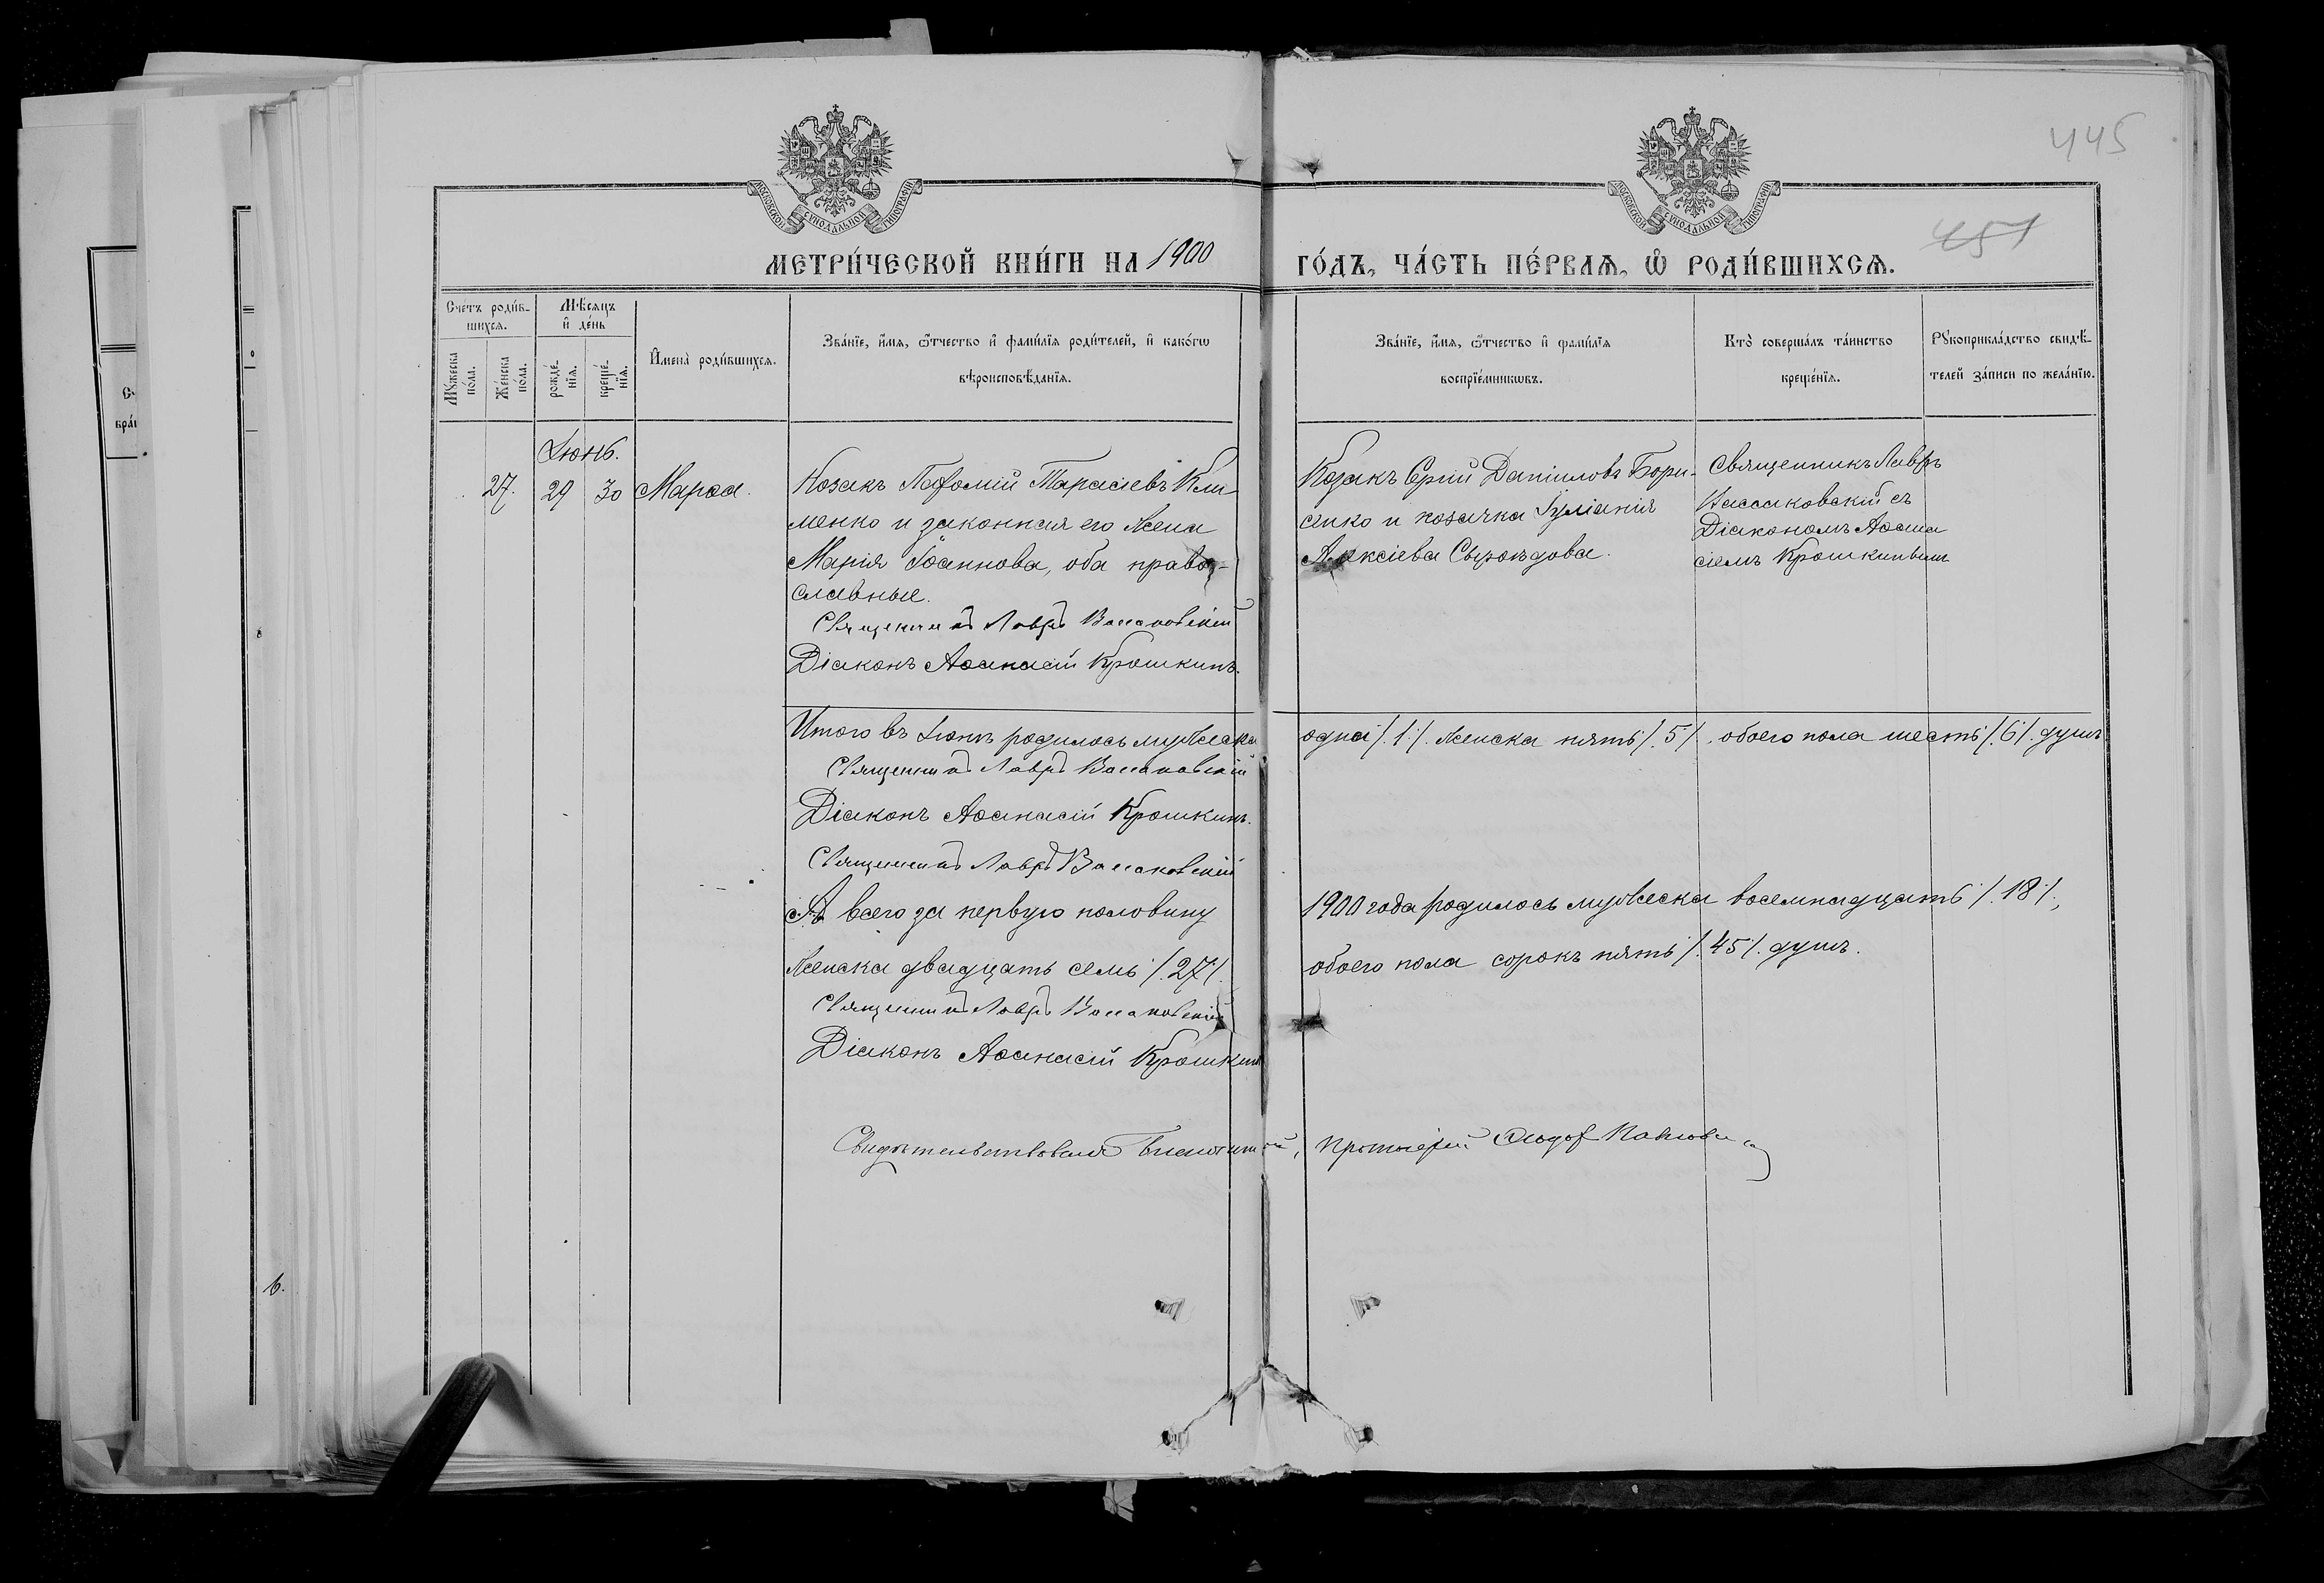 445
451
МОСКОВСКОЙ СѴНОДАЛЬНОЙ ТИПОГРАФІИ
МОСКОВСКОЙ СѴНОДАЛЬНОЙ ТИПОГРАФІИ
МЕТРИ́ЧЕСКОЙ КНИ́ГИ НА 1900 ГО́ДЪ, ЧА́СТЬ ПЕ́РВАѦ, Ѡ҆ РОДИ́ВШИХСѦ.
Сче́тъ роди́в-
шихсѧ.
Мꙋ́жеска
по́ла.
Же́нска
по́ла.
Мѣ́сѧцъ
и҆ де́нь
рожде́-
нїѧ.
креще́-
нїѧ.
И҆мена̀ роди́вшихсѧ.
Зва́нїе, и҆́мѧ, ѻ҆́тчество и҆ фами́лїѧ роди́телей, и҆ како́гѡ
вѣроисповѣ́данїѧ.
Зва́нїе, и҆́мѧ, ѻ҆́тчество и҆ фами́лїѧ
воспрїе́мникѡвъ.
Кто̀ соверша́лъ та́инство
креще́нїѧ.
Рꙋкоприкла́дство свидѣ́-
телей за́писи по жела́нїю.
Іюнь.
27. 29 30 Марѳа.
Козакъ Пафомій Тарасіевъ Кли-
менко и законная его жена
Марія Іоаннова, оба право-
славные.
Священникъ Лавръ Вассаковскій
Діаконъ Аѳанасій Крошкинъ.
Козакъ Ерій Даніиловъ Бори-
сенко и козачка Іуліанія
Алексіева Сыроѣдова.
Священникъ Лавръ
Вассаковскій съ
Діакономъ Аѳана
сіемъ Крошкинымъ
Итого въ Іюнѣ родилось мужеска одна /.1./. женска пять /.5./. обоего пола шесть /.6./. душъ
Священникъ Лавръ Вассаковскій
Діаконъ Аѳанасій Крошкинъ.
Священникъ Лавръ Вассаковскій
А всего за первую половину 1900 года родилось мужеска восемнадцать /.18./.,
женска двадцать семь /.27./. обоего пола сорокъ пять /.45./. душъ.
Священникъ Лавръ Вассаковскій
Діаконъ Аѳанасій Крошкинъ
Свидѣтельствовалъ Благочинный, Протоіерей